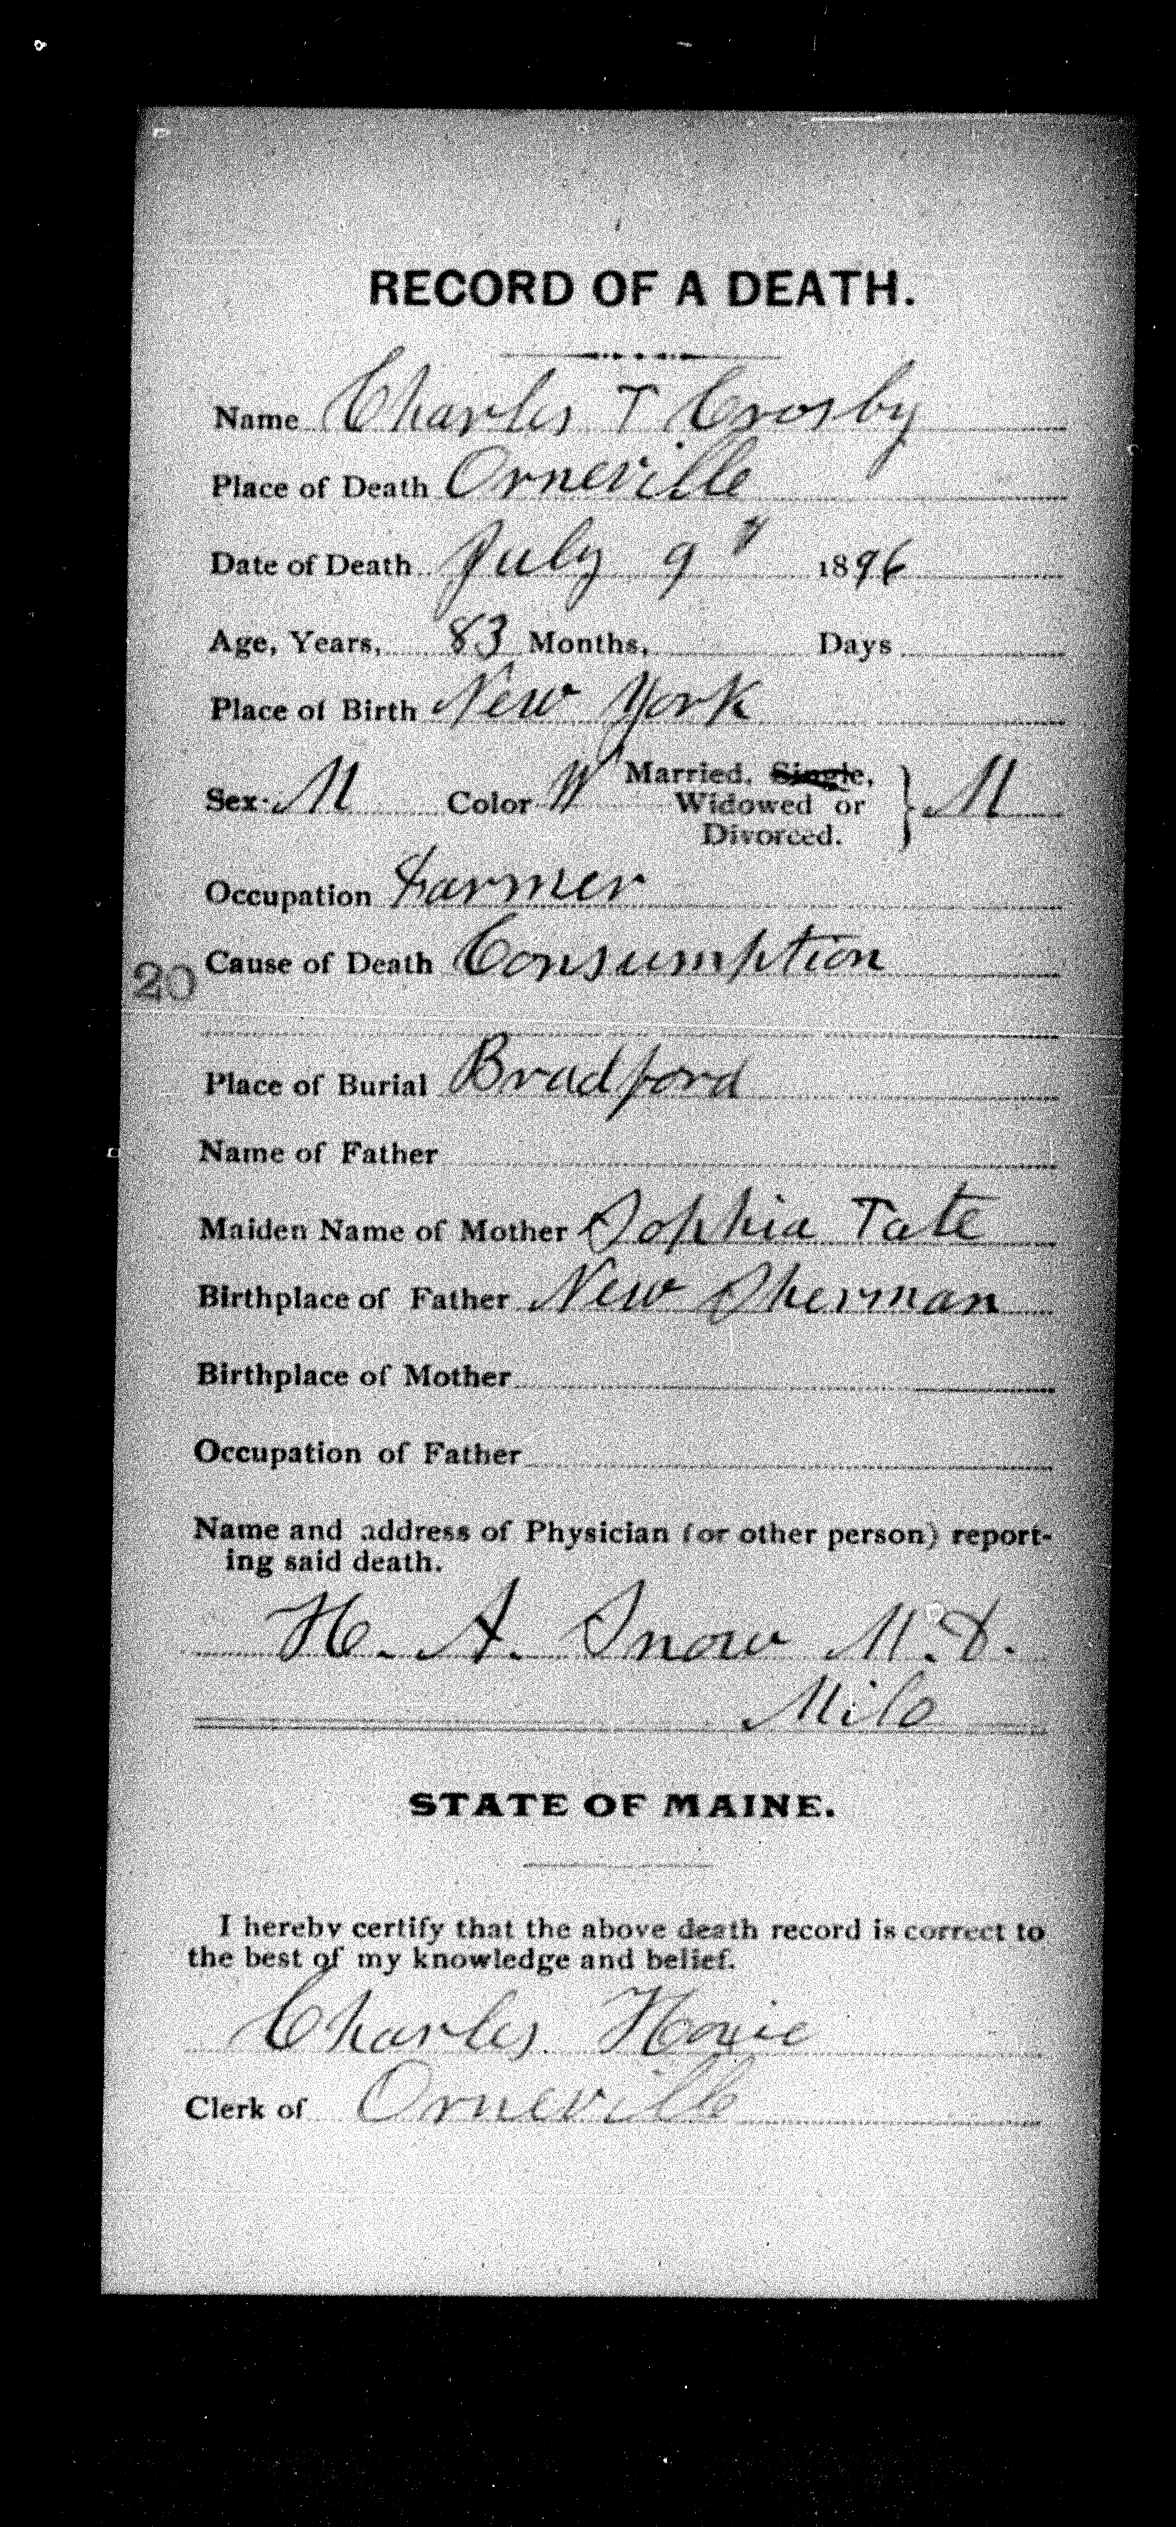 RECORD OF A DEATH.
Name Charles T Crosby
Place of Death Orneville
Date of Death July 9 1896
Age, Years, 83 Months, Days
Place of Birth New York
Sex M Color W Married, Single, Widowed or Divorced. } M
Occupation Farmer
20 Cause of Death Consumption
Place of Burial Bradford
Name of Father
Maiden Name of Mother Sophia Tate
Birthplace of Father New Sherman
Birthplace of Mother
Occupation of Father
Name and address of Physician (or other person) report-
ing said death.
H. A. Snow M.D.
Milo
STATE OF MAINE.
I hereby certify that the above death record is correct to
the best of my knowledge and belief.
Charles Hoxie
Clerk of Orneville